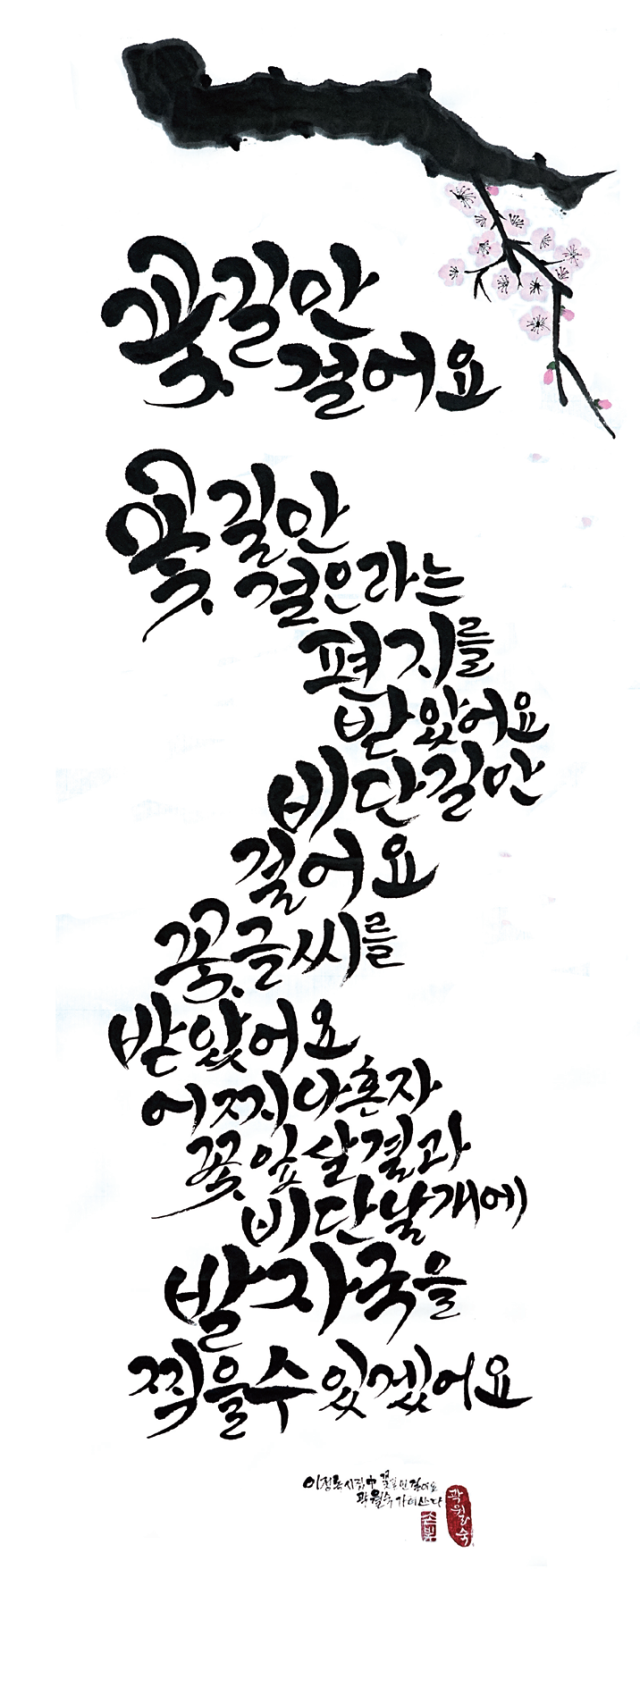 꽃길만
걸어요
꽃길만
걸으라는
편지를
받았어요
비단길만
걸어요
꽃글씨를
받았어요
어찌나혼자
꽃잎살결과
비단날개에
발자국을
찍을수있겠어요
이정록시집中 꽃길만걸어요
곽월숙
곽월숙